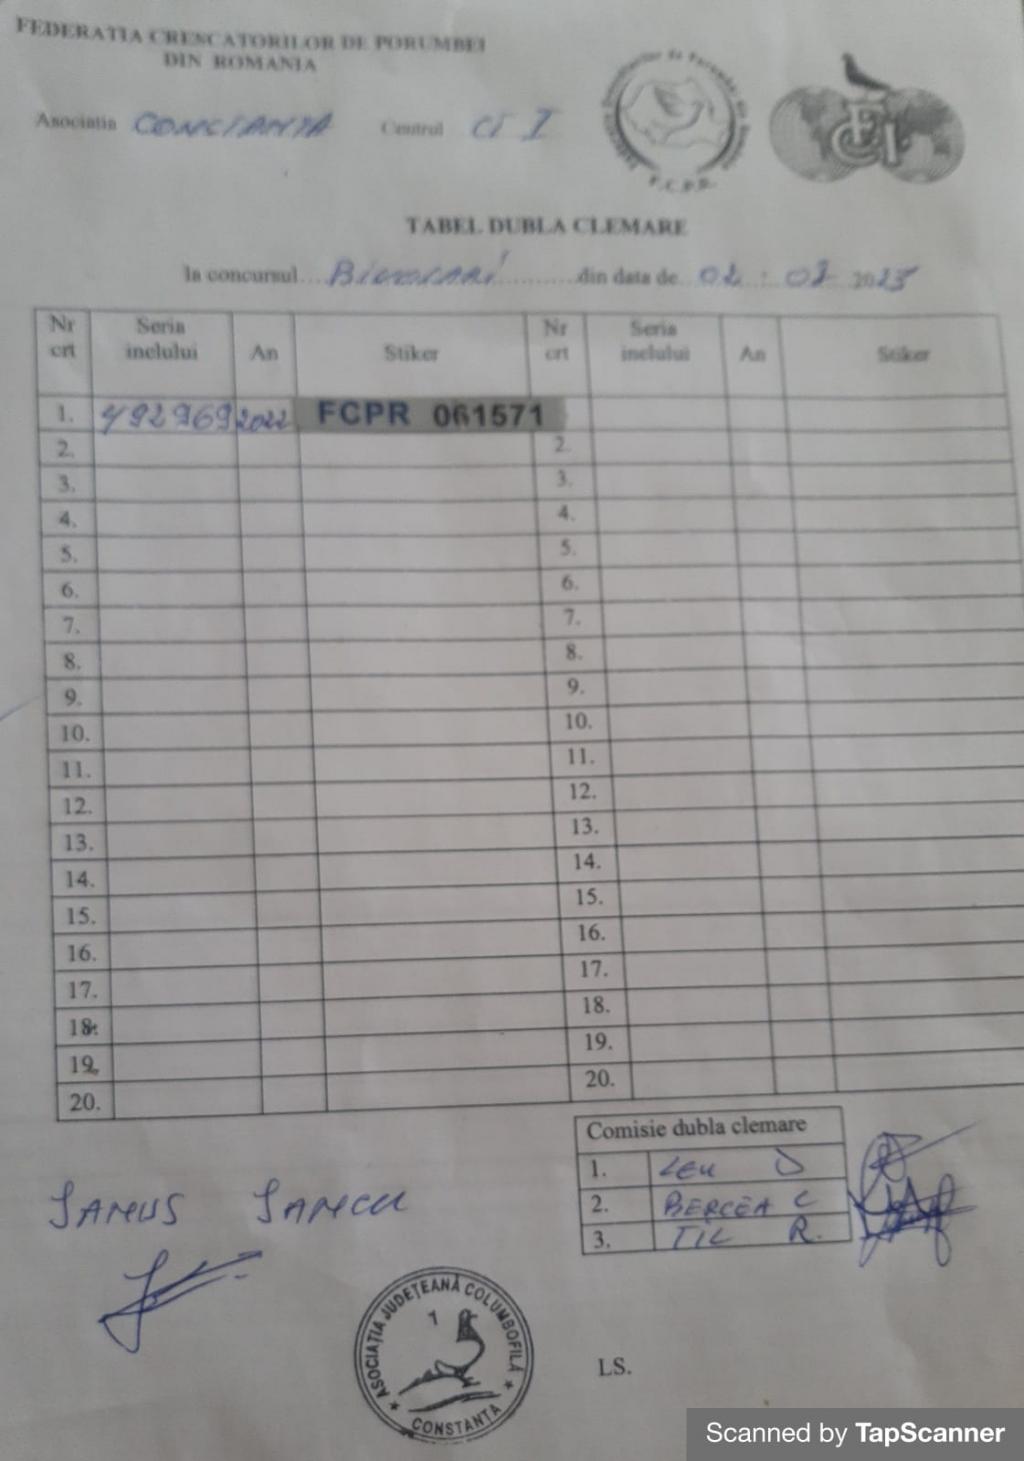 FEDERATIA CRESCATORILOR DE PORUMBEI
DIN ROMANIA
Asociatia CONSTANTA Centrul CT I
F.C.P.R.
FCI
TABEL DUBLA CLEMARE
la concursul.... ............din data de 02 : 07 2023
Nr crt Seria inelului An Stiker Nr crt Seria inelului An Stiker
1. 492969 2022 FCPR 061571
2. 2.
3. 3.
4. 4.
5. 5.
6. 6.
7. 7.
8. 8.
9. 9.
10. 10.
11. 11.
12. 12.
13. 13.
14. 14.
15. 15.
16. 16.
17. 17.
18. 18.
19. 19.
20. 20.
Comisie dubla clemare
1. LEU D
2. BERCEA C
3. TIL R.
IANUS IANCU
ASOCIAȚIA JUDEȚEANĂ COLUMBOFILĂ
1
CONSTANȚA
LS.
Scanned by TapScanner